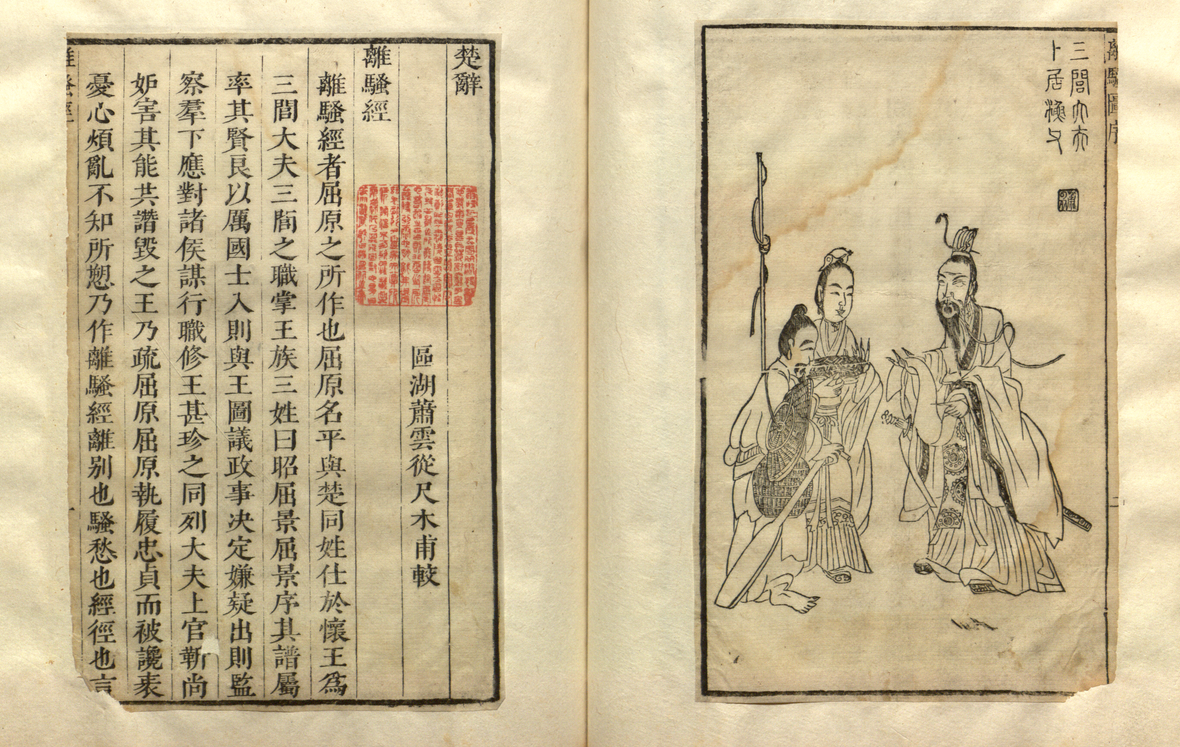 離騷圖序
三閭大夫
卜居漁父
二
楚辭
區湖蕭雲從尺木甫較
離騷經
離騷經者屈原之所作也屈原名平與楚同姓仕於懷王爲
三閭大夫三閭之職掌王族三姓曰昭屈景屈景序其譜屬
率其賢良以厲國士入則與王圖議政事决定嫌疑出則監
察羣下應對諸侯謀行職修王甚珍之同列大夫上官靳尚
妒害其能共譖毀之王乃疏屈原屈原執履忠貞而被讒衺
憂心煩亂不知所愬乃作離騷經離別也騷愁也經徑也言
離騷經